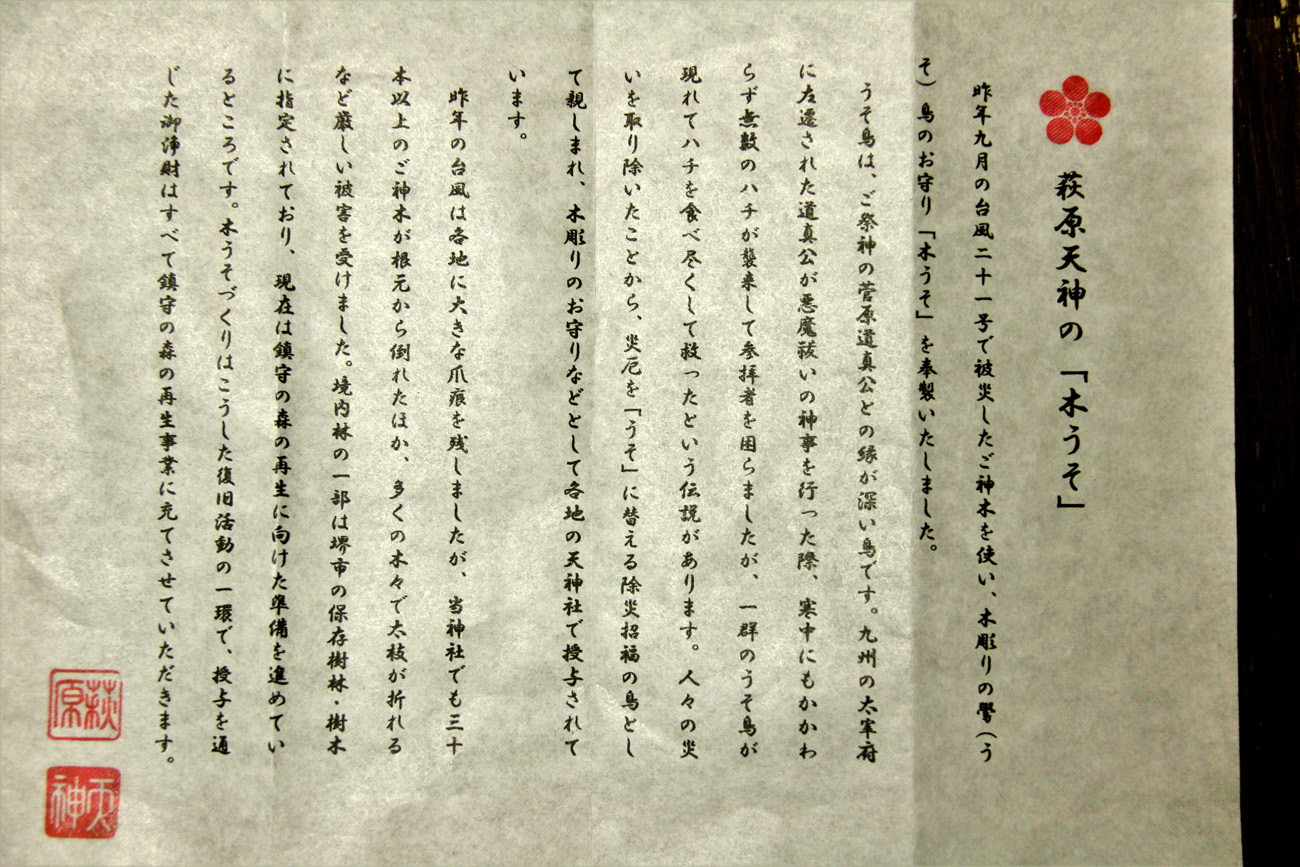 萩原天神の「木うそ」
昨年九月の台風二十一号で被災したご神木を使い、木彫りの鷽（う
そ）鳥のお守り「木うそ」を奉製いたしました。
うそ鳥は、ご祭神の菅原道真公との縁が深い鳥です。九州の太宰府
に左遷された道真公が悪魔祓いの神事を行った際、寒中にもかかわ
らず無数のハチが襲来して参拝者を困らましたが、一群のうそ鳥が
現れてハチを食べ尽くして救ったという伝説があります。人々の災
いを取り除いたことから、災厄を「うそ」に替える除災招福の鳥とし
て親しまれ、木彫りのお守りなどとして各地の天神社で授与されて
います。
昨年の台風は各地に大きな爪痕を残しましたが、当神社でも三十
本以上のご神木が根元から倒れたほか、多くの木々で太枝が折れる
など厳しい被害を受けました。境内林の一部は堺市の保存樹林・樹木
に指定されており、現在は鎮守の森の再生に向けた準備を進めてい
るところです。木うそづくりはこうした復旧活動の一環で、授与を通
じた御浄財はすべて鎮守の森の再生事業に充てさせていただきます。
萩原
天神